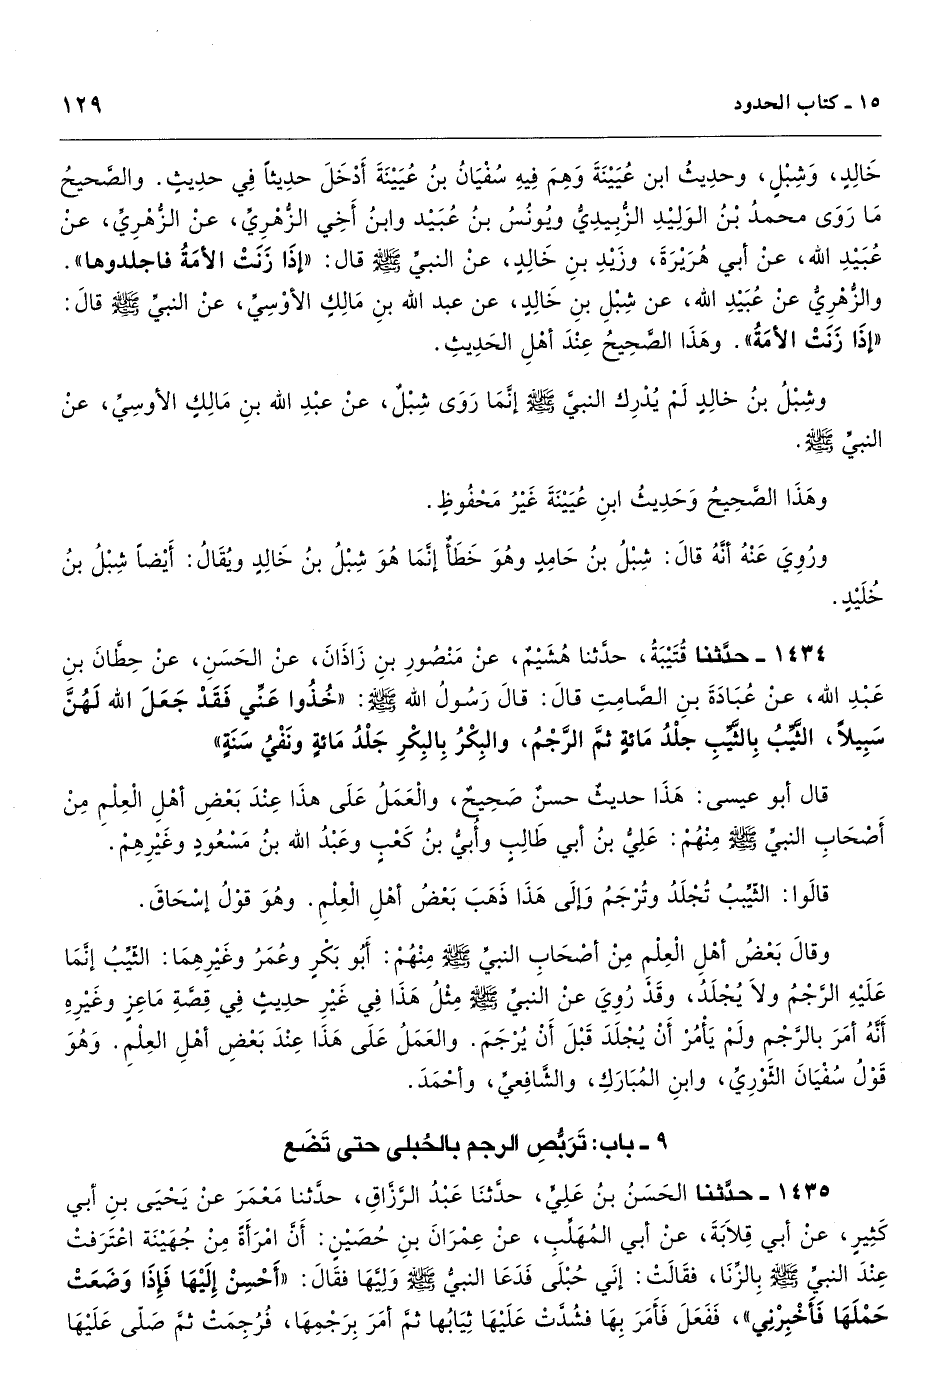 ١٥ ـ كتاب الحدود ١٢٩
خَالِدٍ، وَشِبْلٍ، وحديثُ ابن عُيَيْنَةَ وَهِمَ فِيهِ سُفْيَانُ بنُ عُيَيْنَةَ أَدْخَلَ حديثاً فِي حديثٍ. والصَّحيحُ
مَا رَوَى محمدُ بْنُ الوَلِيْدِ الزُّبِيدِيُّ ويُونُسُ بنُ عُبَيْد وابنُ أخِي الزُّهْرِيِّ، عن الزُّهْرِيِّ، عن
عُبَيْدِ الله، عن أبي هُرَيْرَةَ، وزَيْدِ بنِ خَالِدٍ، عن النبيِّ ﷺ قال: «إِذَا زَنَتْ الأمَةُ فاجلدوها».
والزُّهْرِيُّ عنْ عُبَيْدِ الله، عن شِبْلِ بنِ خَالِدٍ، عن عبد الله بنِ مَالِكٍ الأوْسِيِّ، عن النبيِّ ﷺ قالَ:
«إِذَا زَنَتْ الأمَةُ». وهَذَا الصَّحيحُ عِنْدَ أهْلِ الحَدِيثِ.
وشِبْلُ بنُ خالِدٍ لَمْ يُدْرِك النبيَّ ﷺ إنَّمَا رَوَى شِبْلٌ، عنْ عبْدِ الله بنِ مَالِكٍ الأوسِيِّ، عنْ
النبيِّ ﷺ.
وهَذَا الصَّحِيحُ وَحَدِيثُ ابنِ عُيَيْنَةَ غَيْرُ مَحْفُوظٍ.
ورُوِيَ عَنْهُ أنَّهُ قالَ: شِبْلُ بنُ حَامِدٍ وهُوَ خَطَأٌ إنَّمَا هُوَ شِبْلُ بنُ خَالِدٍ ويُقَالُ: أَيْضاً شِبْلُ بنُ
خُلَيْدٍ.
١٤٣٤ ـ حدَّثنا قُتَيْبَةُ، حدَّثنا هُشَيْمٌ، عنْ مَنْصُورِ بنِ زَاذَانَ، عنْ الحَسَنِ، عنْ حِطَّانَ بنِ
عَبْدِ الله، عنْ عُبَادَةَ بنِ الصَّامِتِ قالَ: قالَ رَسُولُ الله ﷺ: «خُذُوا عَنِّي فَقَدْ جَعَلَ الله لَهُنَّ
سَبِيلاً، الثَّيِّبُ بِالثَّيِّبِ جلْدُ مَائةٍ ثمَّ الرَّجْمُ، والبِكْرُ بِالبِكْرِ جَلْدُ مَائةٍ ونَفْيُ سَنَةٍ»
قال أبو عيسى: هَذَا حديثٌ حسنٌ صَحِيحٌ، والْعَمَلُ عَلَى هذَا عِنْدَ بَعْضِ أهْلِ الْعِلْمِ مِنْ
أَصْحَابِ النبيِّ ﷺ مِنْهُمْ: عَلِيُّ بنُ أبي طَالِبٍ وأُبيُّ بنُ كَعْبٍ وعَبْدُ الله بنُ مَسْعُودٍ وغَيْرِهِمْ.
قالَوا: الثَّيِّبُ تُجْلَدُ وتُرْجَمُ وَإلَى هَذَا ذَهَبَ بَعْضُ أهْلِ الْعِلْمِ. وهُوَ قوْلُ إسْحَاقَ.
وقالَ بَعْضُ أهْلِ الْعِلْمِ مِنْ أصْحَابِ النبيِّ ﷺ مِنْهُمْ: أَبُو بَكْرٍ وعُمَرُ وغَيْرِهِمَا: الثَّيِّبُ إنَّمَا
عَلَيْهِ الرَّجْمُ ولاَ يُجْلَدُ، وقَدْ رُوِيَ عنْ النبيِّ ﷺ مِثْلُ هَذَا فِي غَيْرِ حديثٍ فِي قِصَّةِ مَاعِزٍ وغَيْرِهِ
أَنَّهُ أمَرَ بالرَّجْمِ ولَمْ يَأْمُرْ أنْ يُجْلَدَ قَبْلَ أنْ يُرْجَمَ. والعَمَلُ عَلَى هَذَا عِنْدَ بَعْضِ أهْلِ العِلْمِ. وهُوَ
قوْلُ سُفْيَانَ الثَّوْرِيِّ، وابنِ المُبَارَكِ، والشَّافِعيِّ، وأحْمَدَ.
٩ ـ باب: تَرَبُّصِ الرجم بالحُبلى حتى تَضَع
١٤٣٥ ـ حدَّثنا الحَسَنُ بنُ عَلِيٍّ، حدَّثنَا عَبْدُ الرَّزَّاقِ، حدَّثنا مَعْمَرَ عنْ يَحْيَى بنِ أبي
كَثِيرٍ، عنْ أبي قِلابَةَ، عنْ أبي المُهَلَّبِ، عنْ عِمْرَانَ بنِ حُصَيْنٍ: أنَّ امْرَأَةً مِنْ جُهَيْنَة اعْتَرَفَتْ
عِنْدَ النبيِّ ﷺ بِالزِّنَا، فقالَتْ: إنِي حُبْلَى فَدَعَا النبيُّ ﷺ وَلِيَّهَا فقَالَ: «أَحْسِنْ إِلَيْهَا فَإِذَا وَضَعَتْ
حَمْلَهَا فَأَخْبِرْنِي»، فَفَعَلَ فَأَمَرَ بِهَا فشُدَّتْ عَلَيْهَا ثِيَابُها ثمَّ أمَرَ بِرَجْمِهَا، فَرُجِمَتْ ثمَّ صَلَّى عَلَيْهَا